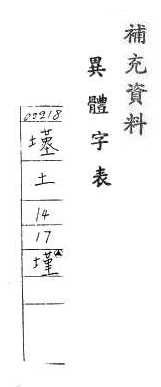 補充資料
異體字表
02218
土
14
17
墐